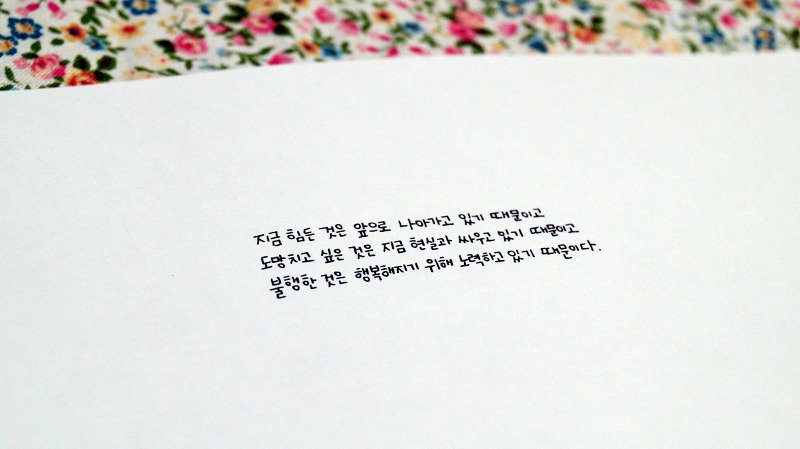 지금 힘든 것은 앞으로 나아가고 있기 때문이고
도망치고 싶은 것은 지금 현실과 싸우고 있기 때문이고
불행한 것은 행복해지기 위해 노력하고 있기 때문이다.